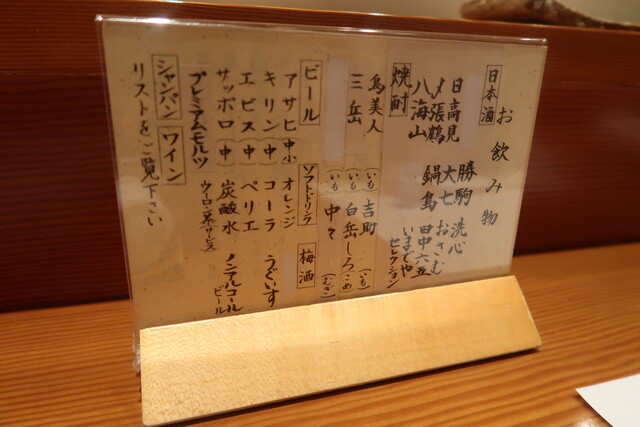 お飲み物
日本酒
日高見 勝駒 洗心
〆張鶴 大七 おさむ
八海山 鍋島 田中六五
いまでやセレクション
焼酎
島美人(いも) 吉助(いも)
三岳(いも) 白岳しろ(こめ)
(いも) 中々(むぎ)
ビール ソフトドリンク 梅酒
アサヒ(中小) オレンジ
キリン(中) コーラ うぐいす
エビス(中) ペリエ
サッポロ(中) 炭酸水 ノンアルコールビール
プレミアムモルツ ウーロン茶サービス
シャンパン ワイン
リストをご覧下さい